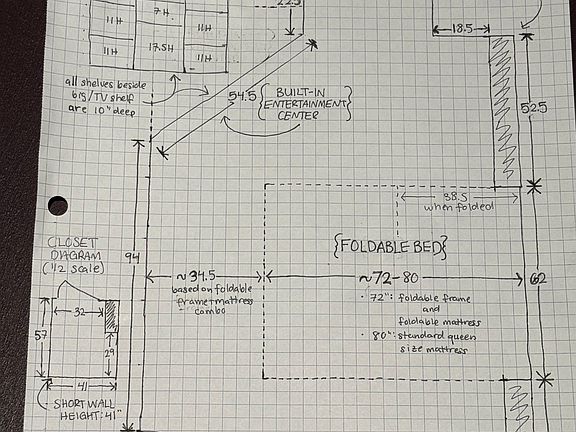 22.5
7H
11H
11H
18.5
11H
17.5H
11H
all shelves beside
big/TV shelf
are 10" deep
54.5
BUILT-IN
ENTERTAINMENT
CENTER
52.5
38.5
when folded
{FOLDABLE BED}
CLOSET
DIAGRAM
(1/2 scale)
94
~34.5
based on foldable
frame+mattress
combo
~72-80
62
· 72": foldable frame
and
foldable mattress
· 80": standard queen
size mattress
32
57
29
41
SHORT WALL
HEIGHT: 41"